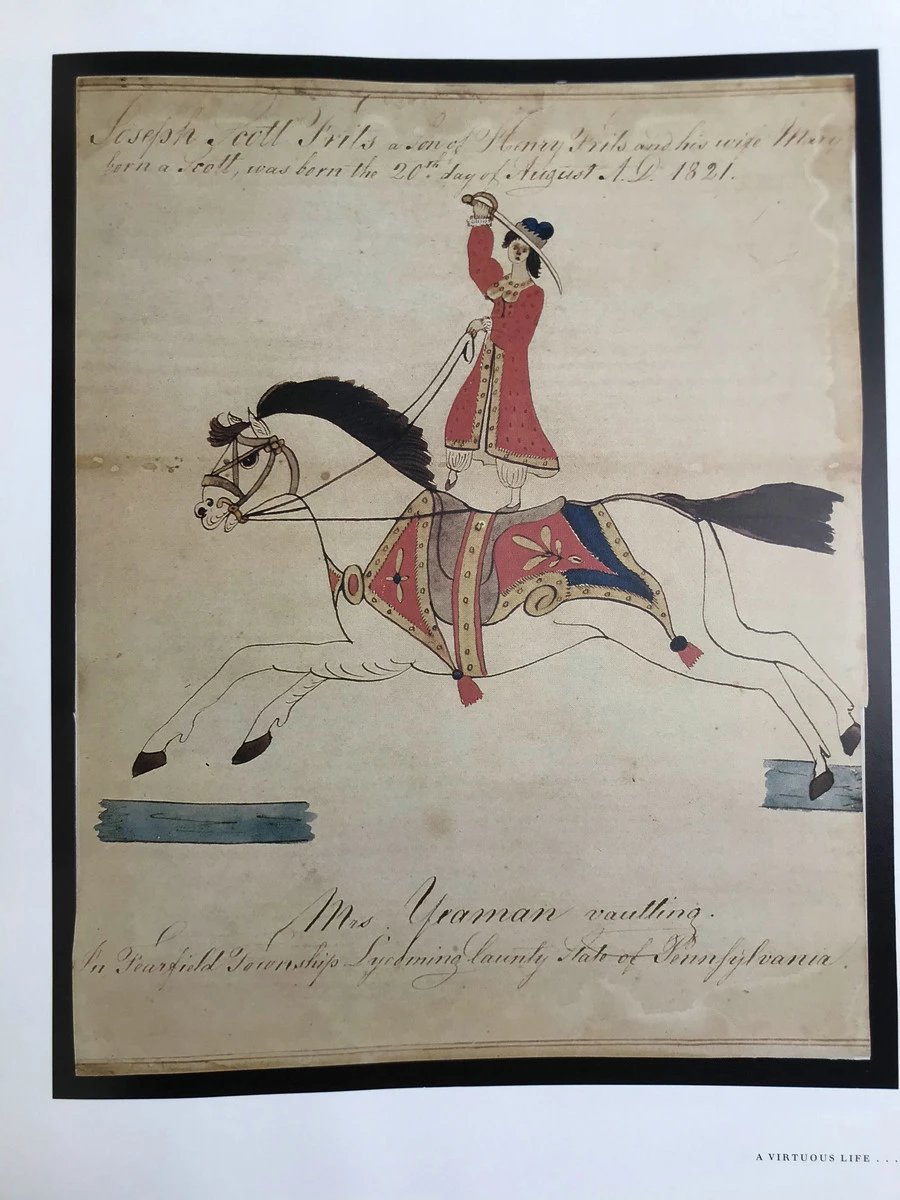 Joseph Scott Frits a Son of Henry Frits and his wife Mary
born a Scott, was born the 20th day of August A.D. 1821.
Mrs Yeaman vaulting.
In Fearfield Township Lycoming County State of Pennsylvania.
A VIRTUOUS LIFE . . .